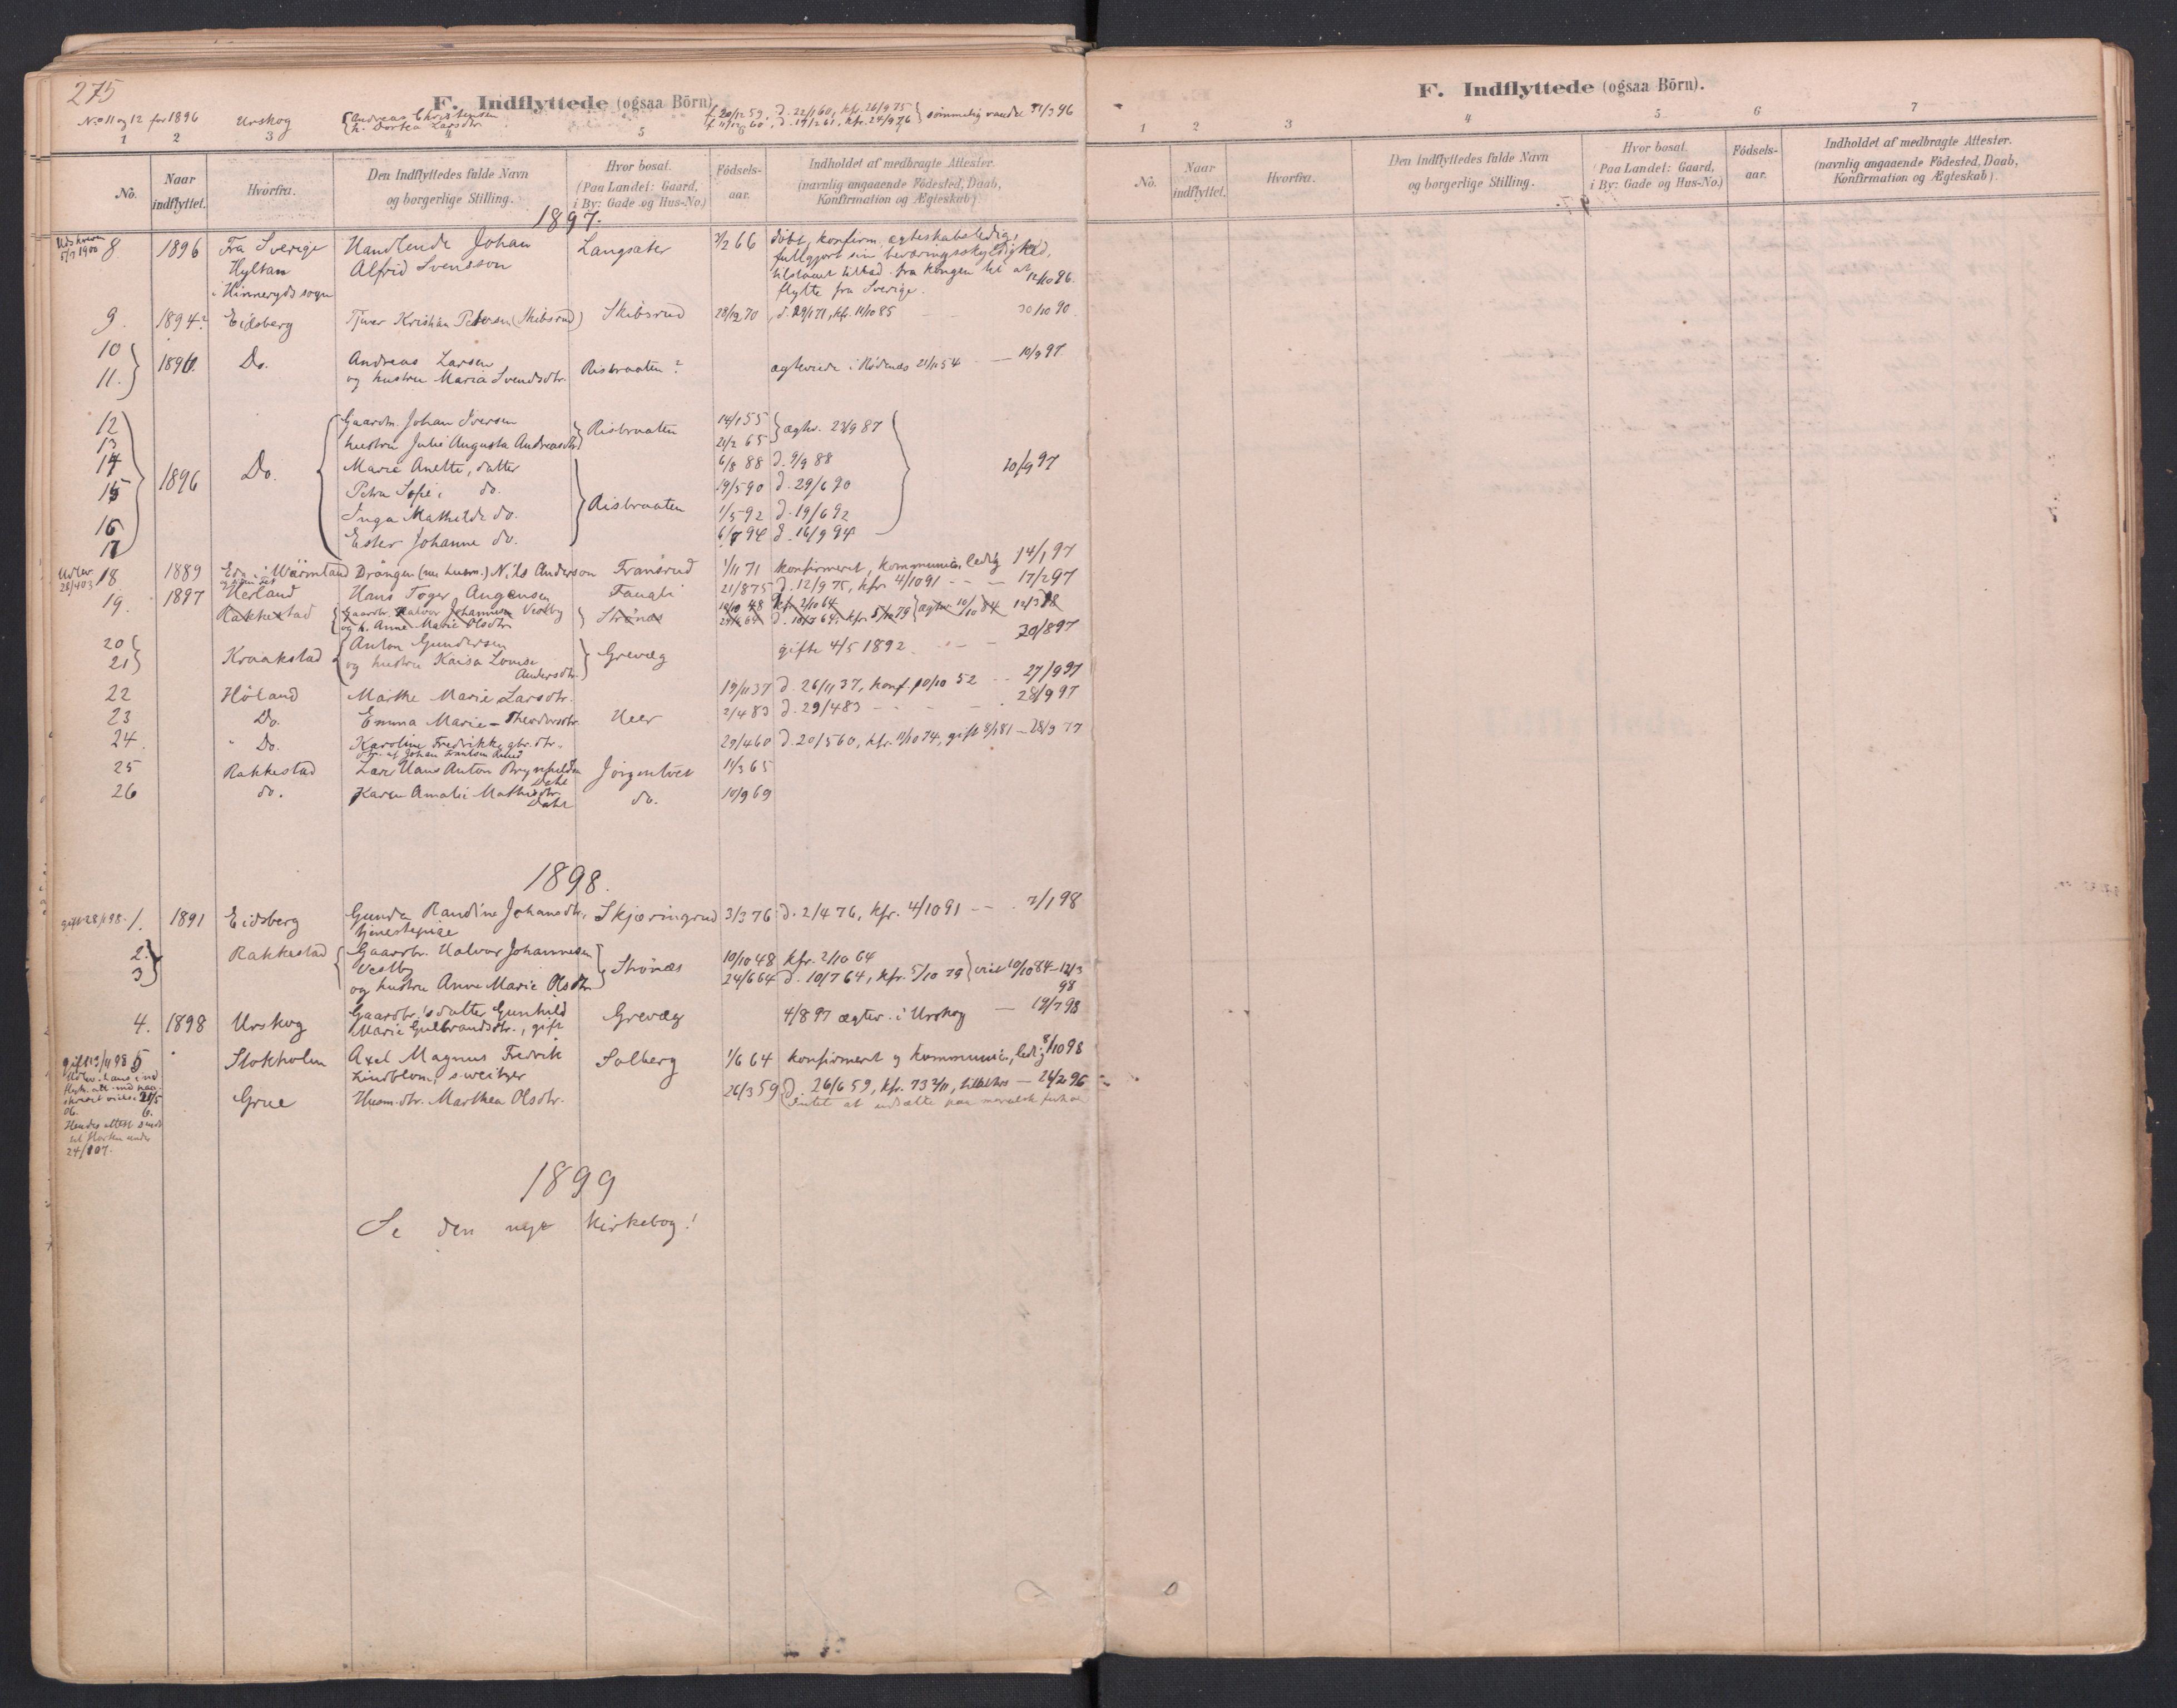 275
F. Indflyttede (ogsaa Börn)
No 11 og 12 for 1896 Urskog Andreas Christensen f. 20/12 59, d. 22/1 60, kfr. 26/9 75 sømmelig vandel 31/3 96
h. Dortea Larsdtr. f. 11/12 60, d. 19/2 61, kfr. 24/9 76
1 2 3 4 5
No. Naar indflyttet. Hvorfra. Den Indflyttedes fulde Navn og borgerlige Stilling. Hvor bosat. (Paa Landet: Gaard, i By: Gade og Hus-No.) Födsels-aar. Indholdet af medbragte Attester. (navnlig angaaende Födested, Daab, Konfirmation og Ægteskab)
1897.
Udskreven 8 1896 Fra Sverige Handlende Johan Langsæter 3/2 66 døbt, konfirm. ægteskabsledig,
5/7 1900 Hyltan Alfrid Svensson fullgjort sin beværingsskyldighed,
i Hinneryds sogn tilstaaet tillad. fra kongen til at
flytte fra Sverige. 12/10 96.
9. 1894? Eidsberg Tjener Kristian Petersen (Skibsrud) Skibsrud 28/12 70 d. 29/1 71, kfr. 11/10 85 30/10 90
10
11. 1896. Do. Andreas Larsen
og hustru Maria Svendsdtr. Risbraaten? ægteviede i Rødenæs 21/11 54 — 10/9 97
12 Gaardm. Johan Iversen Risbraaten 14/1 55 ægtev. 23/9 87
13 hustru Julie Augusta Andreasdtr. 21/2 65
14 Marie Anette, datter 6/8 88 d. 9/9 88 20/9 97
15 1896 Do. Petra Sofie, do. 19/5 90 d. 29/6 90
16 Inga Mathilde do. Risbraaten 1/5 92 d. 19/6 92
17 Ester Johanne do. 6/7 94 d. 16/9 94
Udlev. 28/4 03 18 1889 Eda i Wärmland Drängen (nu husm.) Nils Anderson Fransrud 1/11 71 konfirmeret, kommunic., ledig 14/1 97
19. 1897 Herland Hans Toger Augensen 21/8 75 d. 12/9 75, kfr. 4/10 91 — 17/2 97
Rakkestad Gaardbr. Halvor Johannesen Vestby Strønæs 10/10 48 kfr. 2/10 64 ægtev. 10/10 84 12/3 98
og h. Anne Marie Olsdtr. 24/6 64 d. 10/7 64, kfr. 5/10 79
20 Anton Gundersen 20/8 97
21 Kraakstad og hustru Kaisa Lovise Grevæg gifte 4/5 1892
Andersdtr.
22 Høland Marthe Marie Larsdtr. 19/11 37 d. 26/11 37, konf. 10/10 52 27/9 97
23 Do. Emma Marie Theodorsdtr. Heer 2/4 83 d. 29/4 83 28/9 97
24. Do. Karoline Fredrikke gbr. dtr. 29/4 60 d. 20/5 60, kfr. 11/10 74, gift 8/1 81 — 28/9 97
25 Rakkestad Lars Hans Anton Brynhildsen Dahl Jørgentvet 11/3 65
26 do. Karen Amalie Mathisdtr. Dahl do. 10/9 69
1898.
gift 28/1 98 1. 1891 Eidsberg Gunda Randine Johansdtr. Skjæringrud 3/3 76 d. 2/4 76, kfr. 4/10 91 — 7/1 98
tjenestepige
2. Rakkestad Gaardbr. Halvor Johannesen 10/10 48 kfr. 2/10 64
3 Vestby Strønæs
og hustru Anne Marie Olsdtr. 24/6 64 d. 10/7 64, kfr. 5/10 79 viet 10/10 84 — 12/3 98
4. 1898 Urskog Gaardbr.'s datter Gunhild Grevæg 4/8 97 ægtev. i Urskog — 19/7 98
Marie Gulbrandsdtr., gift
gift 13/11 98 5 Stokholm Axel Magnus Fredrik Solberg 1/6 64 konfirmeret og kommunic., ledig 8/10 98
Lindblom, sweitzer
6. Grue Husm.dtr. Marthea Olsdtr. 26/3 59 d. 26/6 59, kfr. 73 — 24/2 96
Intet at udsætte paa moralsk forhold
Hendes attest sendt
24/1 07.
1899
Se den nye Kirkebog!
F. Indflyttede (ogsaa Börn).
1 2 3 4 5 6 7
No. Naar indflyttet. Hvorfra. Den Indflyttedes fulde Navn og borgerlige Stilling. Hvor bosat. (Paa Landet: Gaard, i By: Gade og Hus-No.) Födsels-aar. Indholdet af medbragte Attester. (navnlig angaaende Födested, Daab, Konfirmation og Ægteskab).